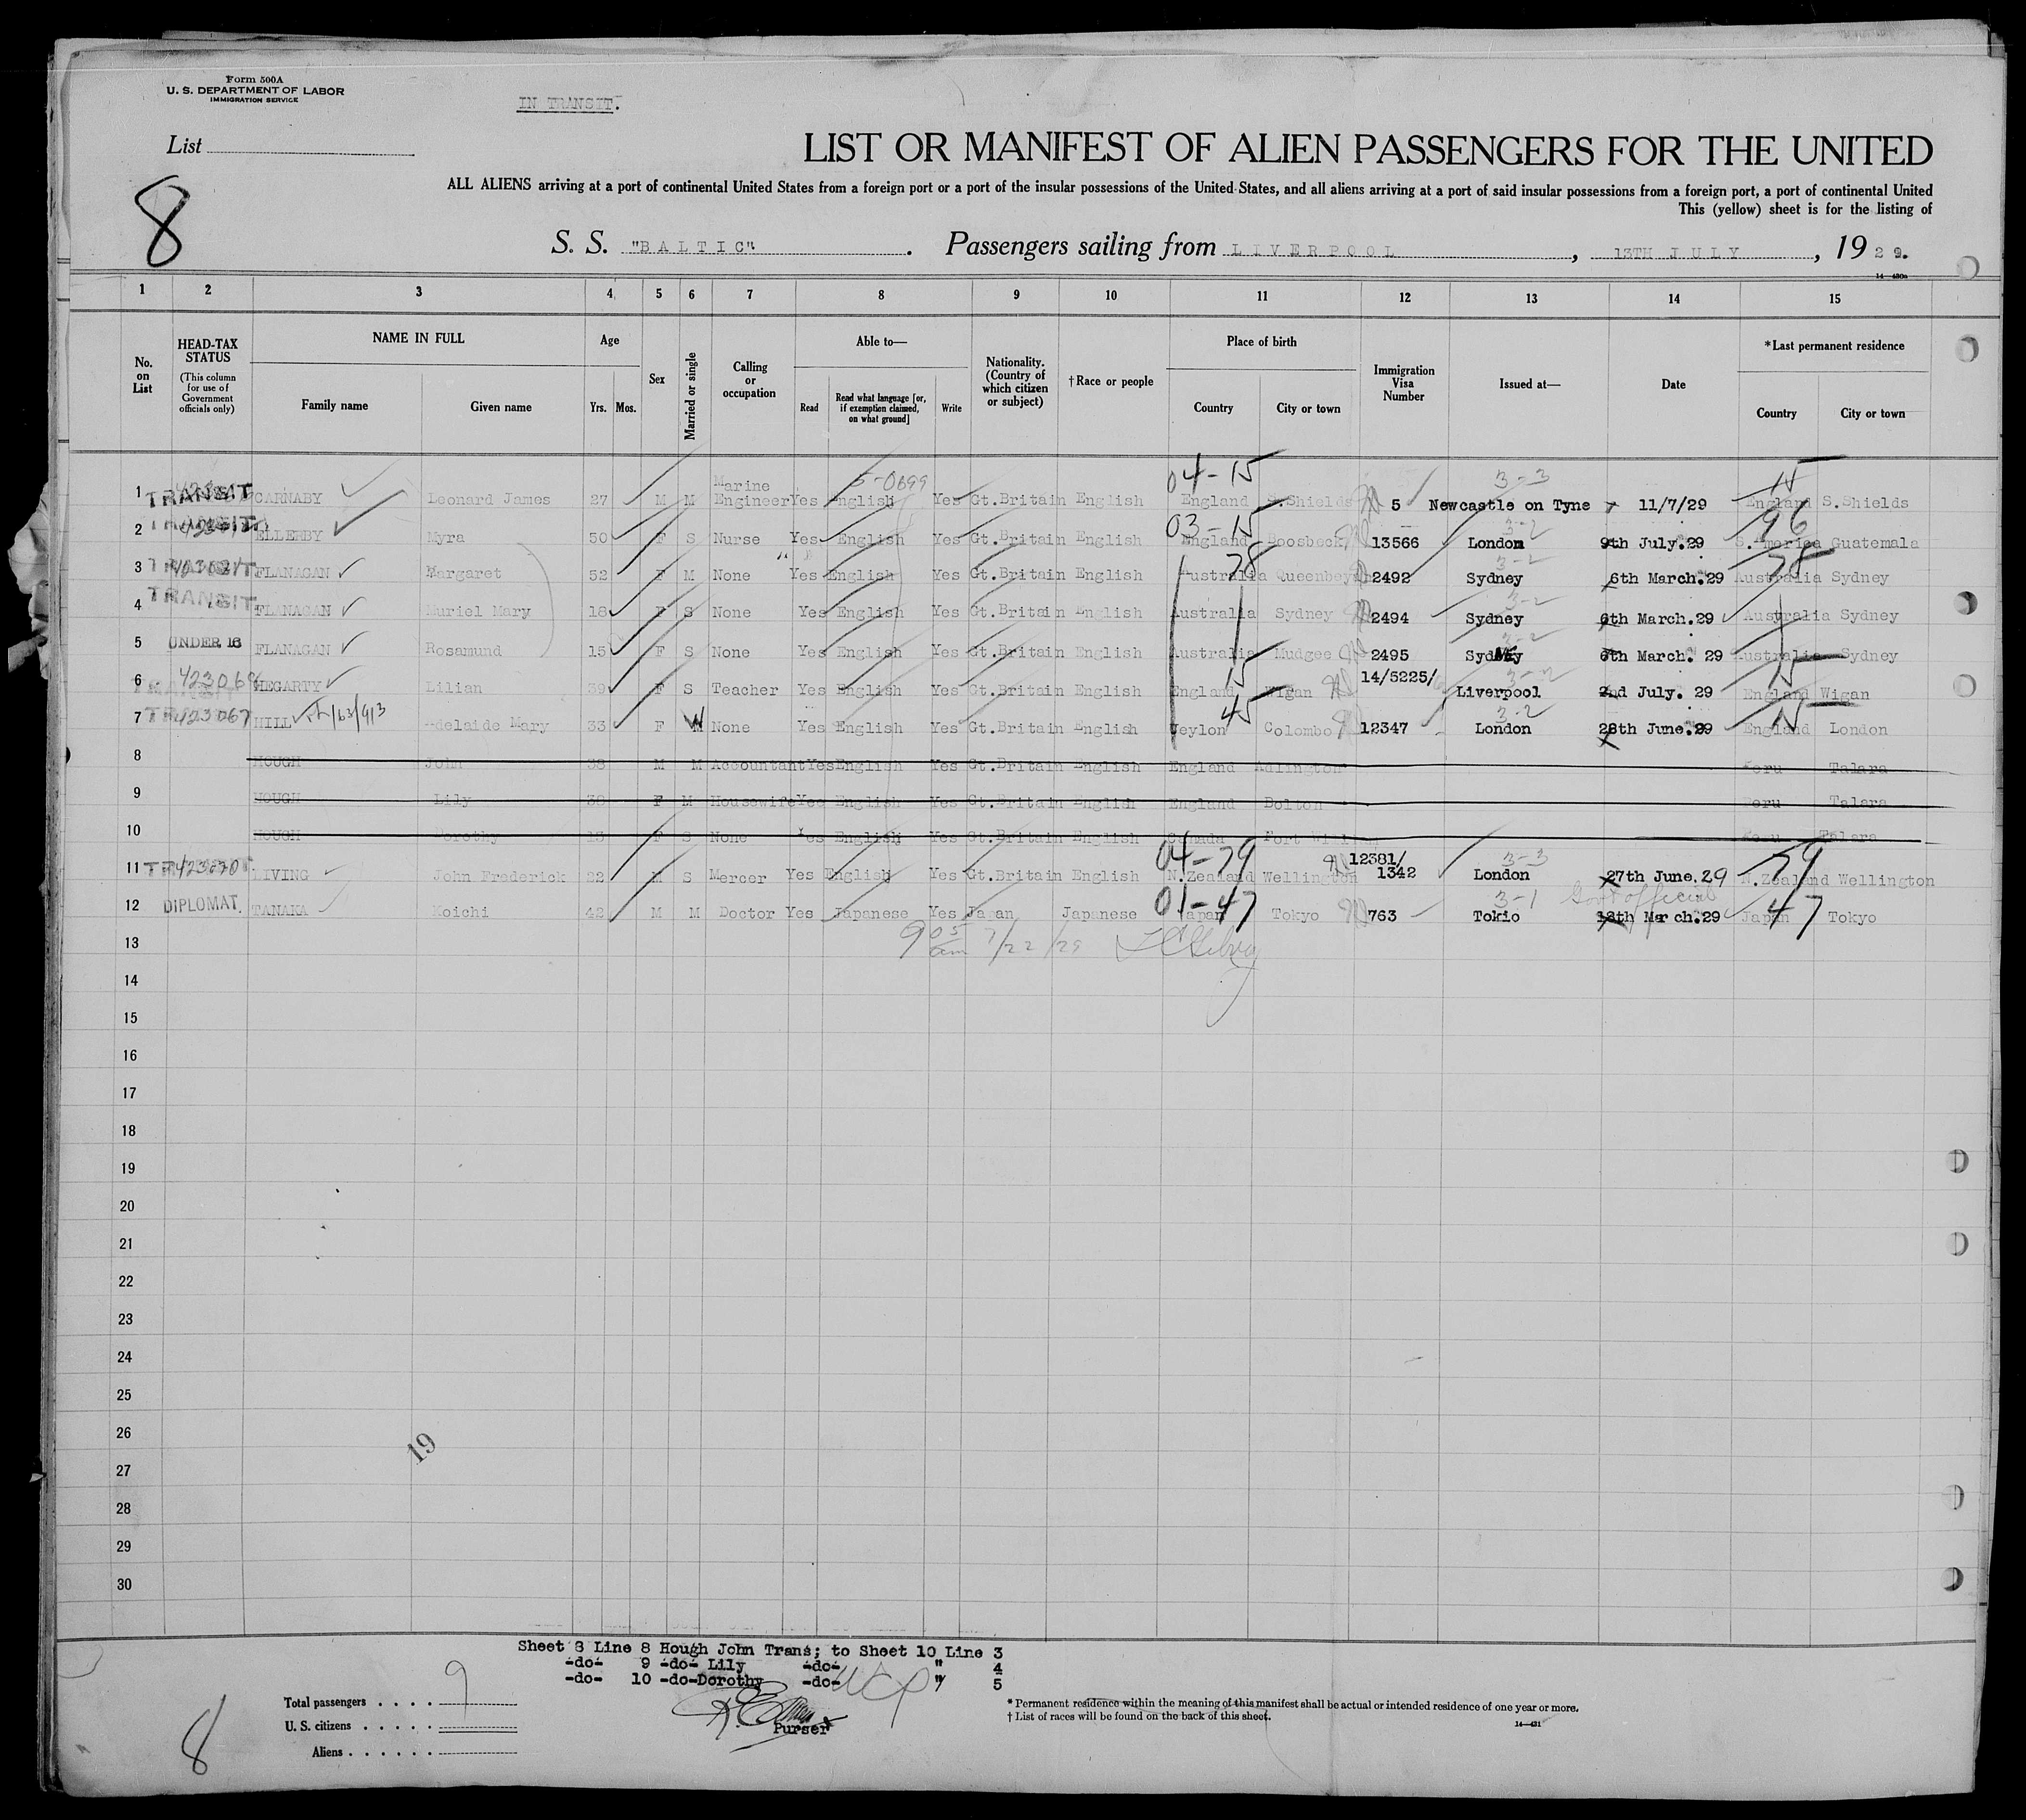 Form 500A
U. S. DEPARTMENT OF LABOR
IMMIGRATION SERVICE
IN TRANSIT.
List
8
LIST OR MANIFEST OF ALIEN PASSENGERS FOR THE UNITED
ALL ALIENS arriving at a port of continental United States from a foreign port or a port of the insular possessions of the United States, and all aliens arriving at a port of said insular possessions from a foreign port, a port of continental United
This (yellow) sheet is for the listing of
S. S. "BALTIC". Passengers sailing from LIVERPOOL, 13TH JULY, 1929.
1 2 3 4 5 6 7 8 9 10 11 12 13 14 15
No. on List
HEAD-TAX STATUS (This column for use of Government officials only)
NAME IN FULL Family name Given name
Age Yrs. Mos.
Sex
Married or single
Calling or occupation
Able to— Read Read what language [or, if exemption claimed, on what ground] Write
Nationality. (Country of which citizen or subject)
†Race or people
Place of birth Country City or town
Immigration Visa Number
Issued at—
Date
*Last permanent residence Country City or town
5-0699 04-15 3-3 15
1 TRANSIT CARNABY Leonard James 27 M M Marine Engineer Yes English Yes Gt.Britain English England S.Shields 5 Newcastle on Tyne 11/7/29 England S.Shields
03-15 3-2 96
2 TRANSIT ELLERBY Myra 50 F S Nurse Yes English Yes Gt.Britain English England Boosbeck 13566 London 9th July.29 S.America Guatemala
78 3-2 78
3 TRANSIT FLANAGAN Margaret 52 F M None Yes English Yes Gt.Britain English Australia Queenbeyan 2492 Sydney 6th March.29 Australia Sydney
3-2
4 TRANSIT FLANAGAN Muriel Mary 18 F S None Yes English Yes Gt.Britain English Australia Sydney 2494 Sydney 6th March.29 Australia Sydney
3-2
5 UNDER 16 FLANAGAN Rosamund 15 F S None Yes English Yes Gt.Britain English Australia Mudgee 2495 Sydney 6th March. 29 Australia Sydney
15 3-2 15
6 TRANSIT HEGARTY Lilian 39 F S Teacher Yes English Yes Gt.Britain English England Wigan 14/5225/ Liverpool 2nd July. 29 England Wigan
45 3-2 15
7 TRANSIT 423067 HILL Adelaide Mary 33 F W None Yes English Yes Gt.Britain English Ceylon Colombo 12347 London 28th June.29 England London
8 HOUGH John 38 M M Accountant Yes English Yes Gt.Britain English England Adlington Peru Talara
9 HOUGH Lily 38 F M Housewife Yes English Yes Gt.Britain English England Bolton Peru Talara
10 HOUGH Dorothy 13 F S None Yes English Yes Gt.Britain English Canada Fort William Peru Talara
04-79 3-3 79
11 TRANSIT 423070 LIVING John Frederick 22 M S Mercer Yes English Yes Gt.Britain English N.Zealand Wellington 12381/ 1342 London 27th June.29 N.Zealand Wellington
01-47 3-1 Govt official 47
12 DIPLOMAT. TANAKA Koichi 42 M M Doctor Yes Japanese Yes Japan Japanese Japan Tokyo 763 Tokio 18th March.29 Japan Tokyo
9 05 am 7/22/29
13
14
15
16
17
18
19
20
21
22
23
24
25
26
19
27
28
29
30
Sheet 8 Line 8 Hough John Trans; to Sheet 10 Line 3
-do- 9 -do- Lily -do- " 4
-do- 10 -do- Dorothy -do- " 5
Total passengers . . . . 9
U. S. citizens . . . . .
Aliens . . . . . .
Purser
* Permanent residence within the meaning of this manifest shall be actual or intended residence of one year or more.
† List of races will be found on the back of this sheet.
14—431
8